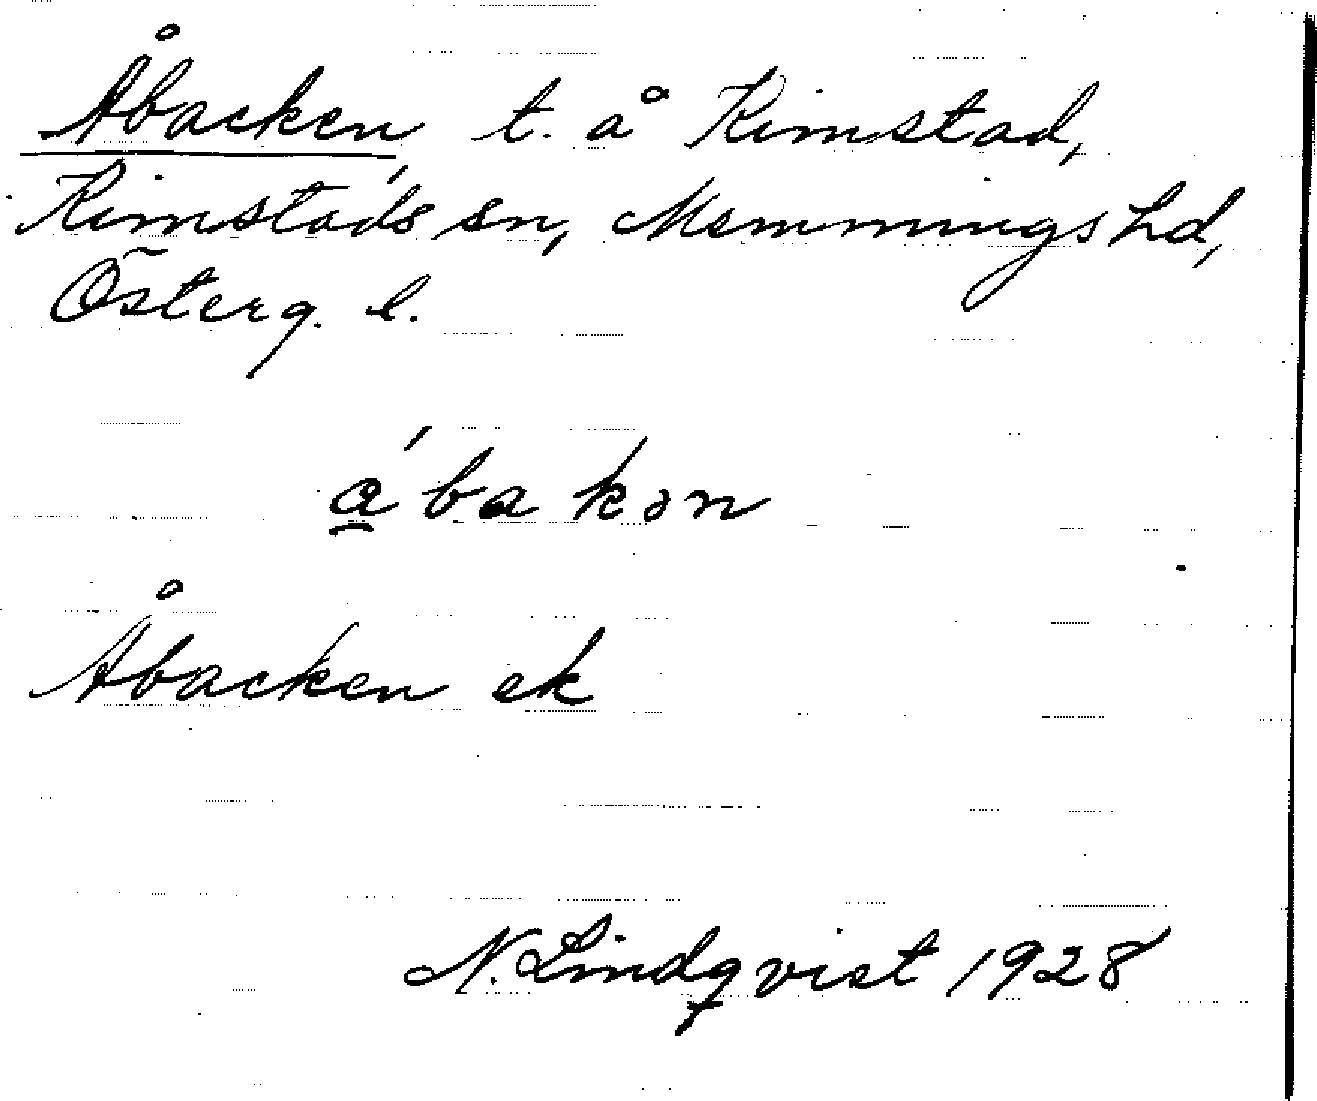 Åbacken, t. å Kimstad,
Kimstads sn, Memmings hd,
Österg. l.
á̲bakən
Åbacken ek
N. Lindqvist 1928